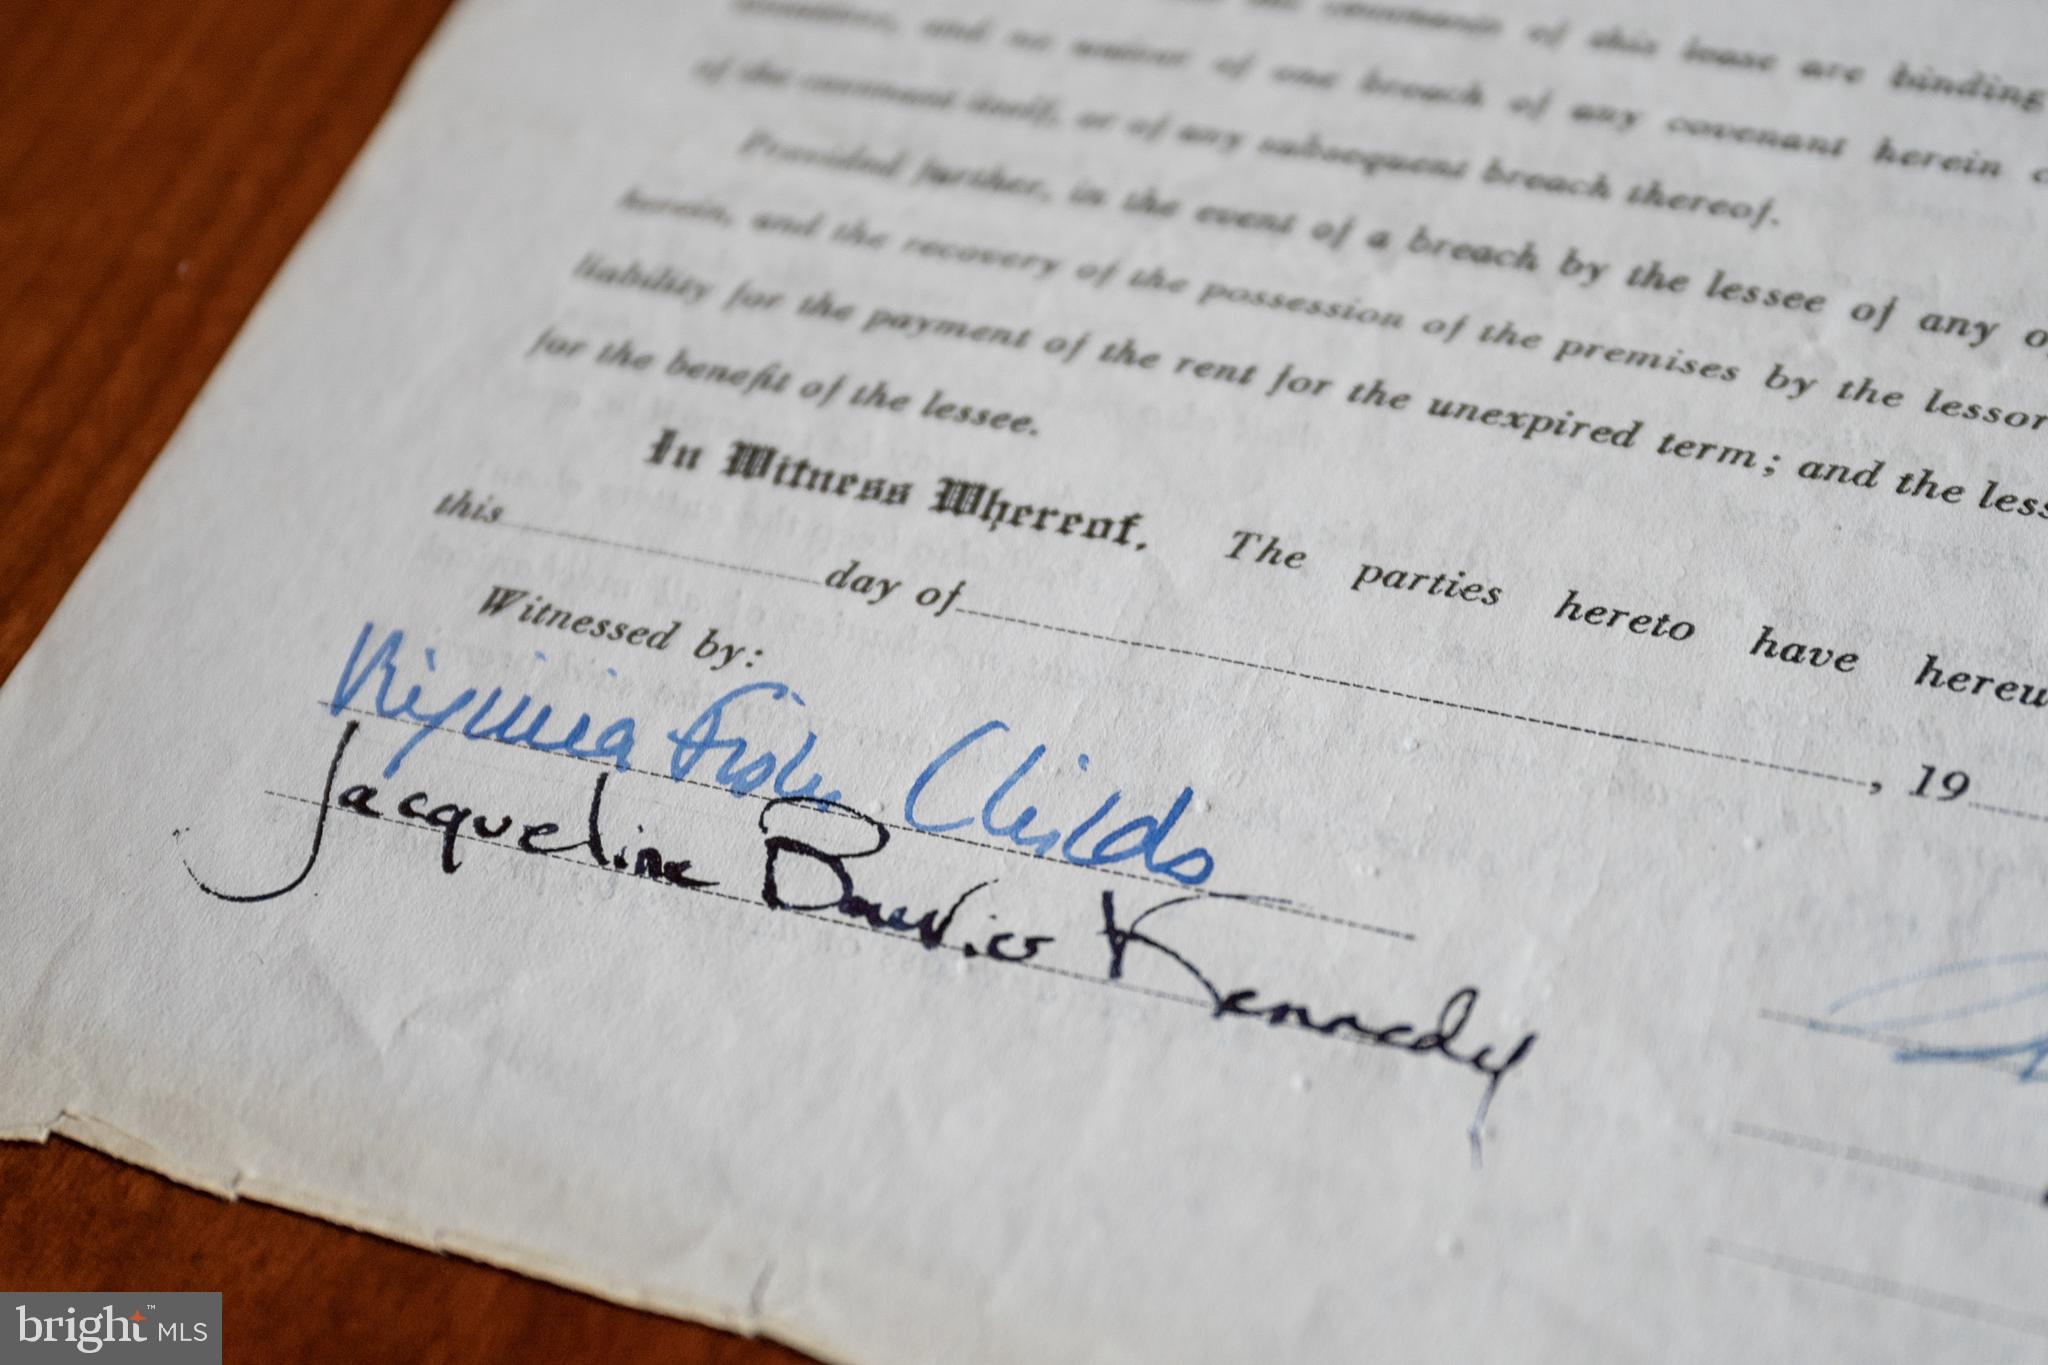 the covenants of this lease are binding
and no waiver of one breach of any covenant herein c
of the covenant itself, or of any subsequent breach thereof.
Provided further, in the event of a breach by the lessee of any o
herein, and the recovery of the possession of the premises by the lessor
liability for the payment of the rent for the unexpired term; and the less
for the benefit of the lessee.
In Witness Whereof, The parties hereto have hereu
this day of , 19
Witnessed by:
Virginia Childs
Jacqueline Bouvier Kennedy
bright™ MLS